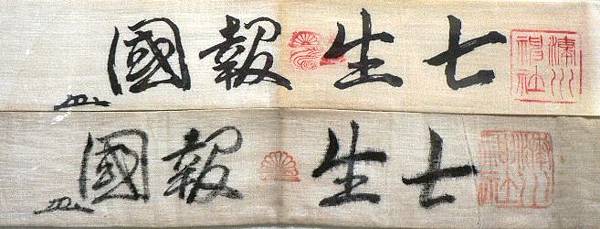 湊川神社
七生報國
湊川神社
七生報國